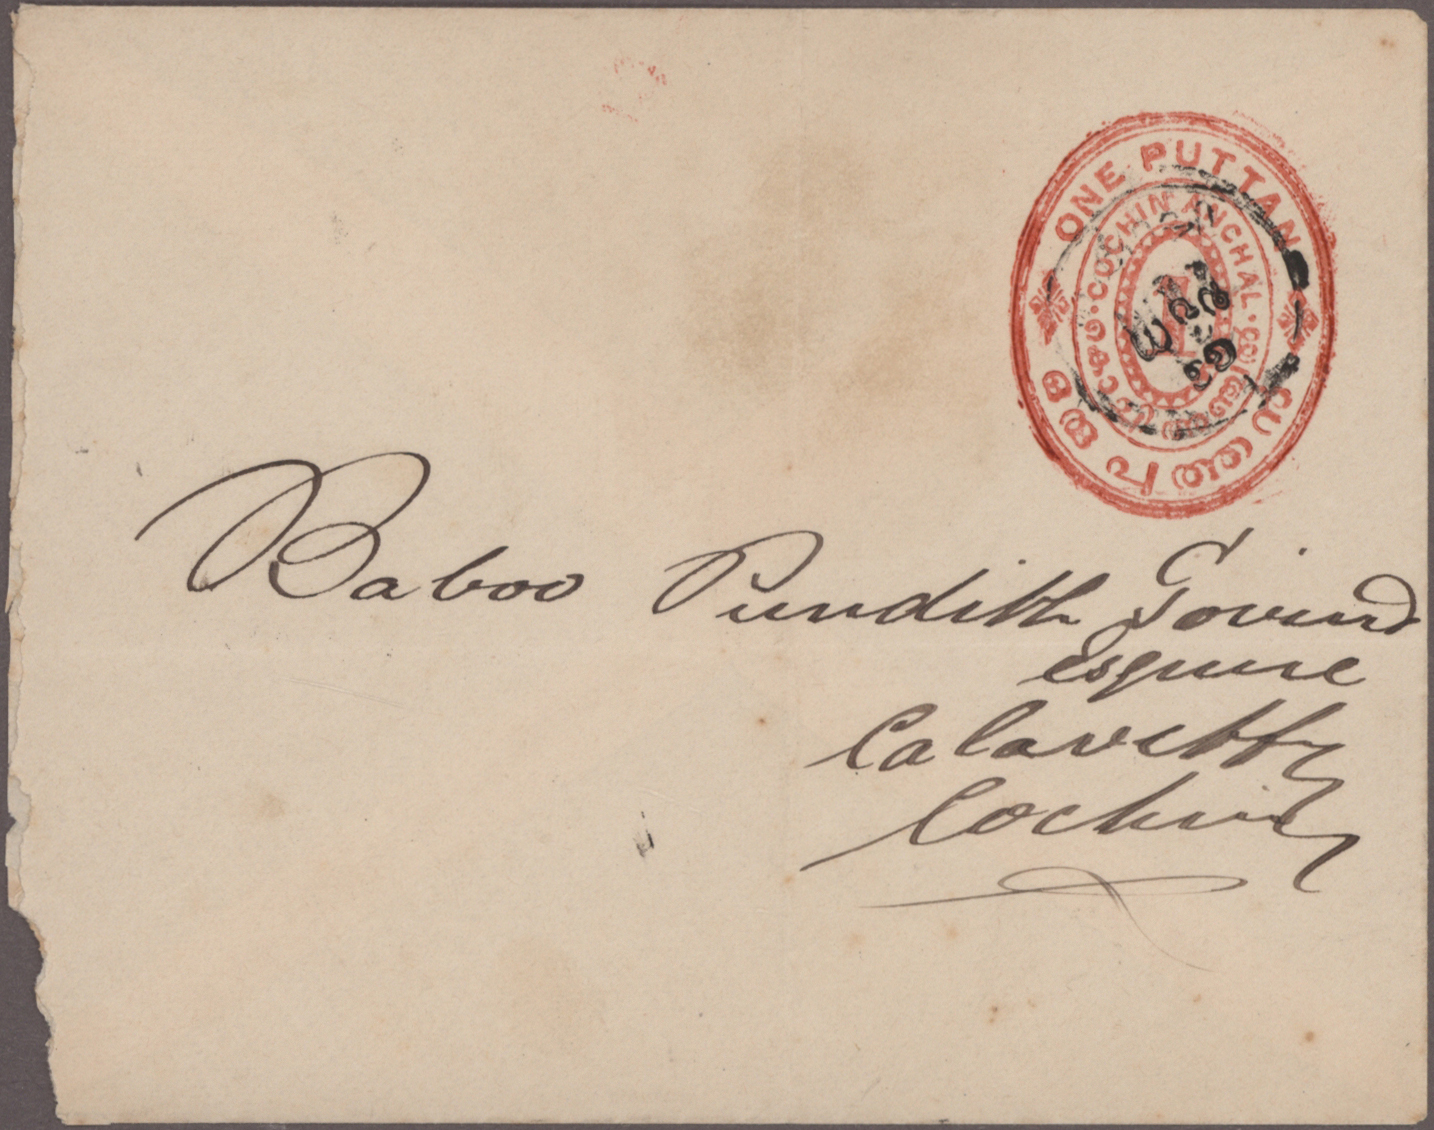 ONE PUTTAN
COCHIN ANCHAL
ഒരു പുത്തൻ
Baboo Pundith Govind
esquire
Calavetty
Cochin